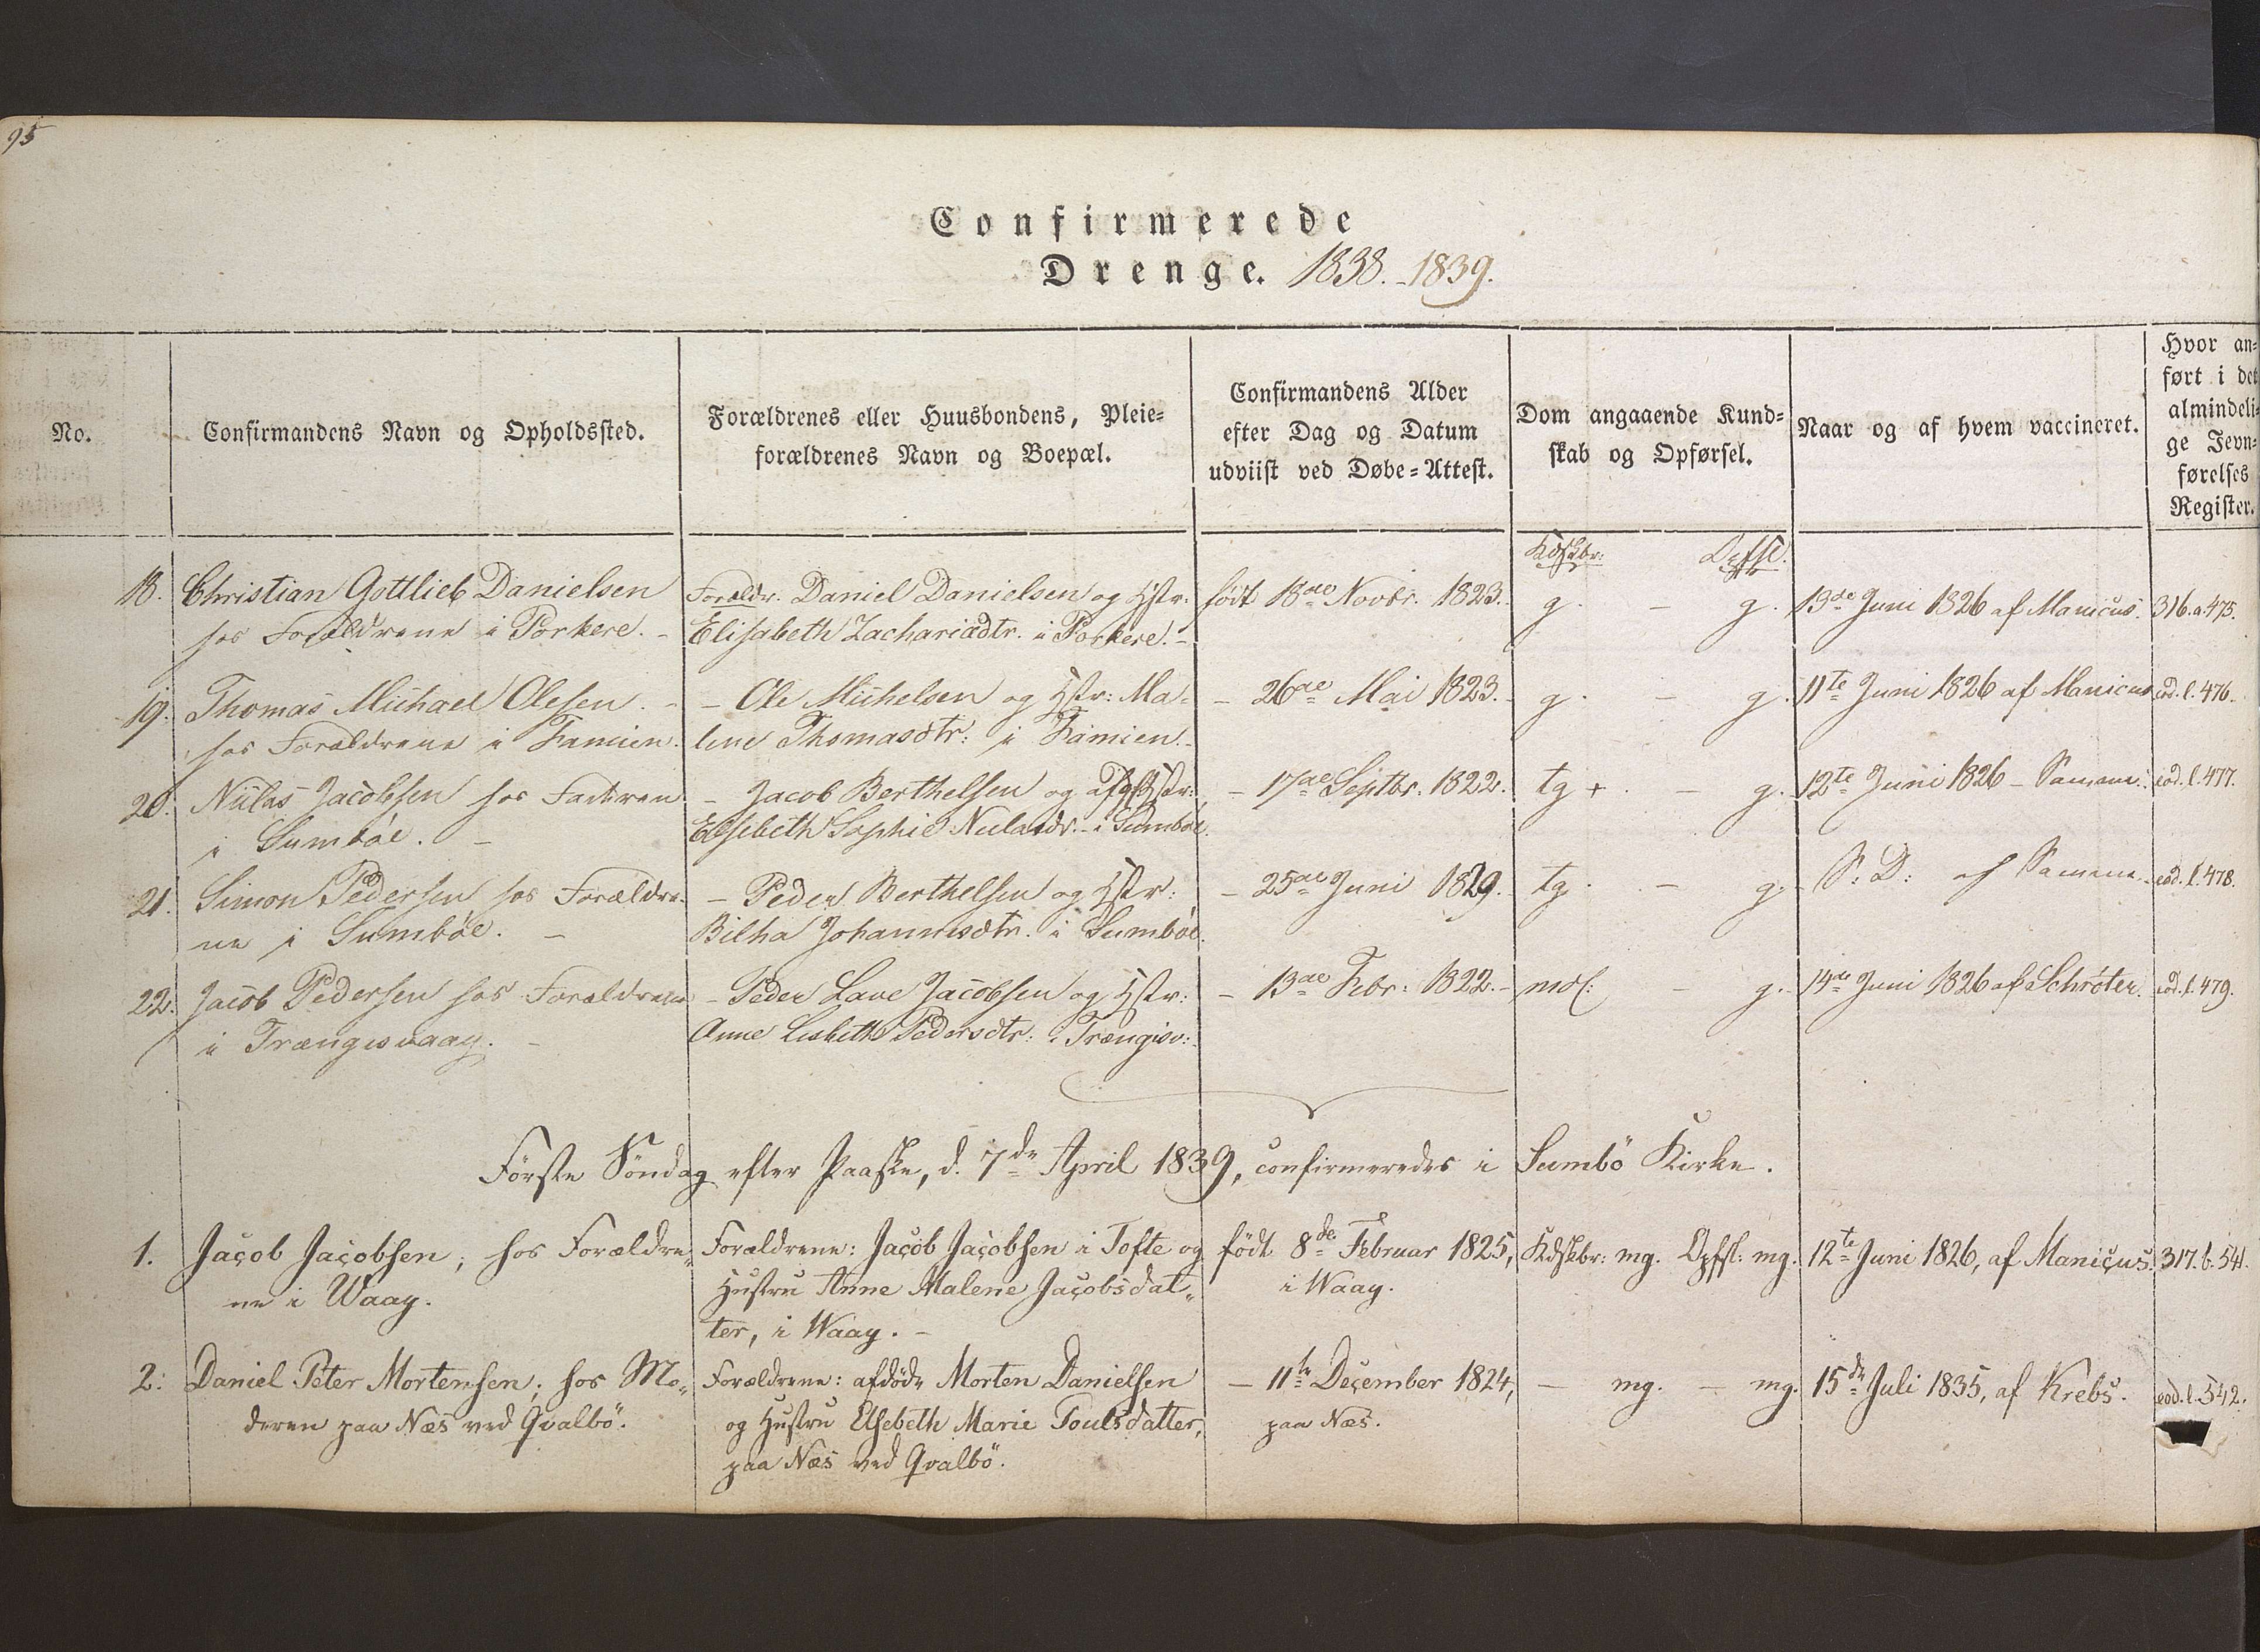 95
Confirmerede
Drenge. 1838.-1839.
No.
Confirmandens Navn og Opholdssted.
Forældrenes eller Huusbondens, Pleie=
forældrenes Navn og Boepæl.
Confirmandens Alder
efter Dag og Datum
udviist ved Døbe=Attest.
Dom angaaende Kund=
skab og Opførsel.
Naar og af hvem vaccineret.
Hvor an=
ført i det
almindeli=
ge Jevn=
førelses
Register.
Kdskbr: Opfsl.
18. Christian Gottlieb Danielsen
hos Forældrene i Porkere. -
Forældr. Daniel Danielsen og Hstr:
Elisabeth Zachariædtr. i Porkere. -
født 18de Novbr. 1823.
g. - g.
13de Juni 1826 af Manicus.
316.a.475.
19. Thomas Michael Olesen. -
hos Forældrene i Famien.
- Ole Michelsen og Hstr: Ma=
lene Thomasdtr: i Famien. -
- 26de Mai 1823.
g. - g.
11te Juni 1826 af Manicus
eod. l. 476.
20. Niclas Jacobsen hos Faderen
i Sumböe. -
- Jacob Berthelsen og Hstr:
Elsebeth Sophie i Sumböe.
- 17de Septbr. 1822.
tg + - g.
12te Juni 1826 - Samme.
eod. l. 477.
21. Simon Pedersen hos Forældre-
ne i Sumböe. -
- Peder Berthelsen og Hstr:
Bilha Johannesdtr. i Sumböe.
- 25de Juni 1829.
tg. - g.
S: D: af Samme.
eod. l. 478.
22. Jacob Pedersen hos Forældrene
i Trængisvaag. -
- Peder Lave Jacobsen og Hstr:
Anne Lisbeth Pedersdtr: i Trængisv:
- 13de Febr: 1822. -
mdl: - g.
14de Juni 1826 af Schröter.
eod. l. 479.
Förste Söndag efter Paaske, d. 7de April 1839, confirmeredes i Sumbö Kirke.
1. Jacob Jacobsen; hos Forældre=
ne i Waag.
Forældrene: Jacob Jacobsen i Tofte og
Hustru Anne Malene Jacobsdat=
ter, i Waag. -
født 8de Februar 1825,
i Waag.
Kdskbr: mg. Opfsl: mg.
12te Juni 1826, af Manicus.
317.b.541.
2. Daniel Peter Mortensen; hos Mo=
deren paa Næs ved Qvalbö.
Forældrene: afdöde Morten Danielsen
og Hustru Elsebeth Marie Poulsdatter,
paa Næs ved Qvalbö.
- 11te December 1824,
paa Næs.
- mg. - mg.
15de Juli 1835, af Krebs.
eod. l. 542.